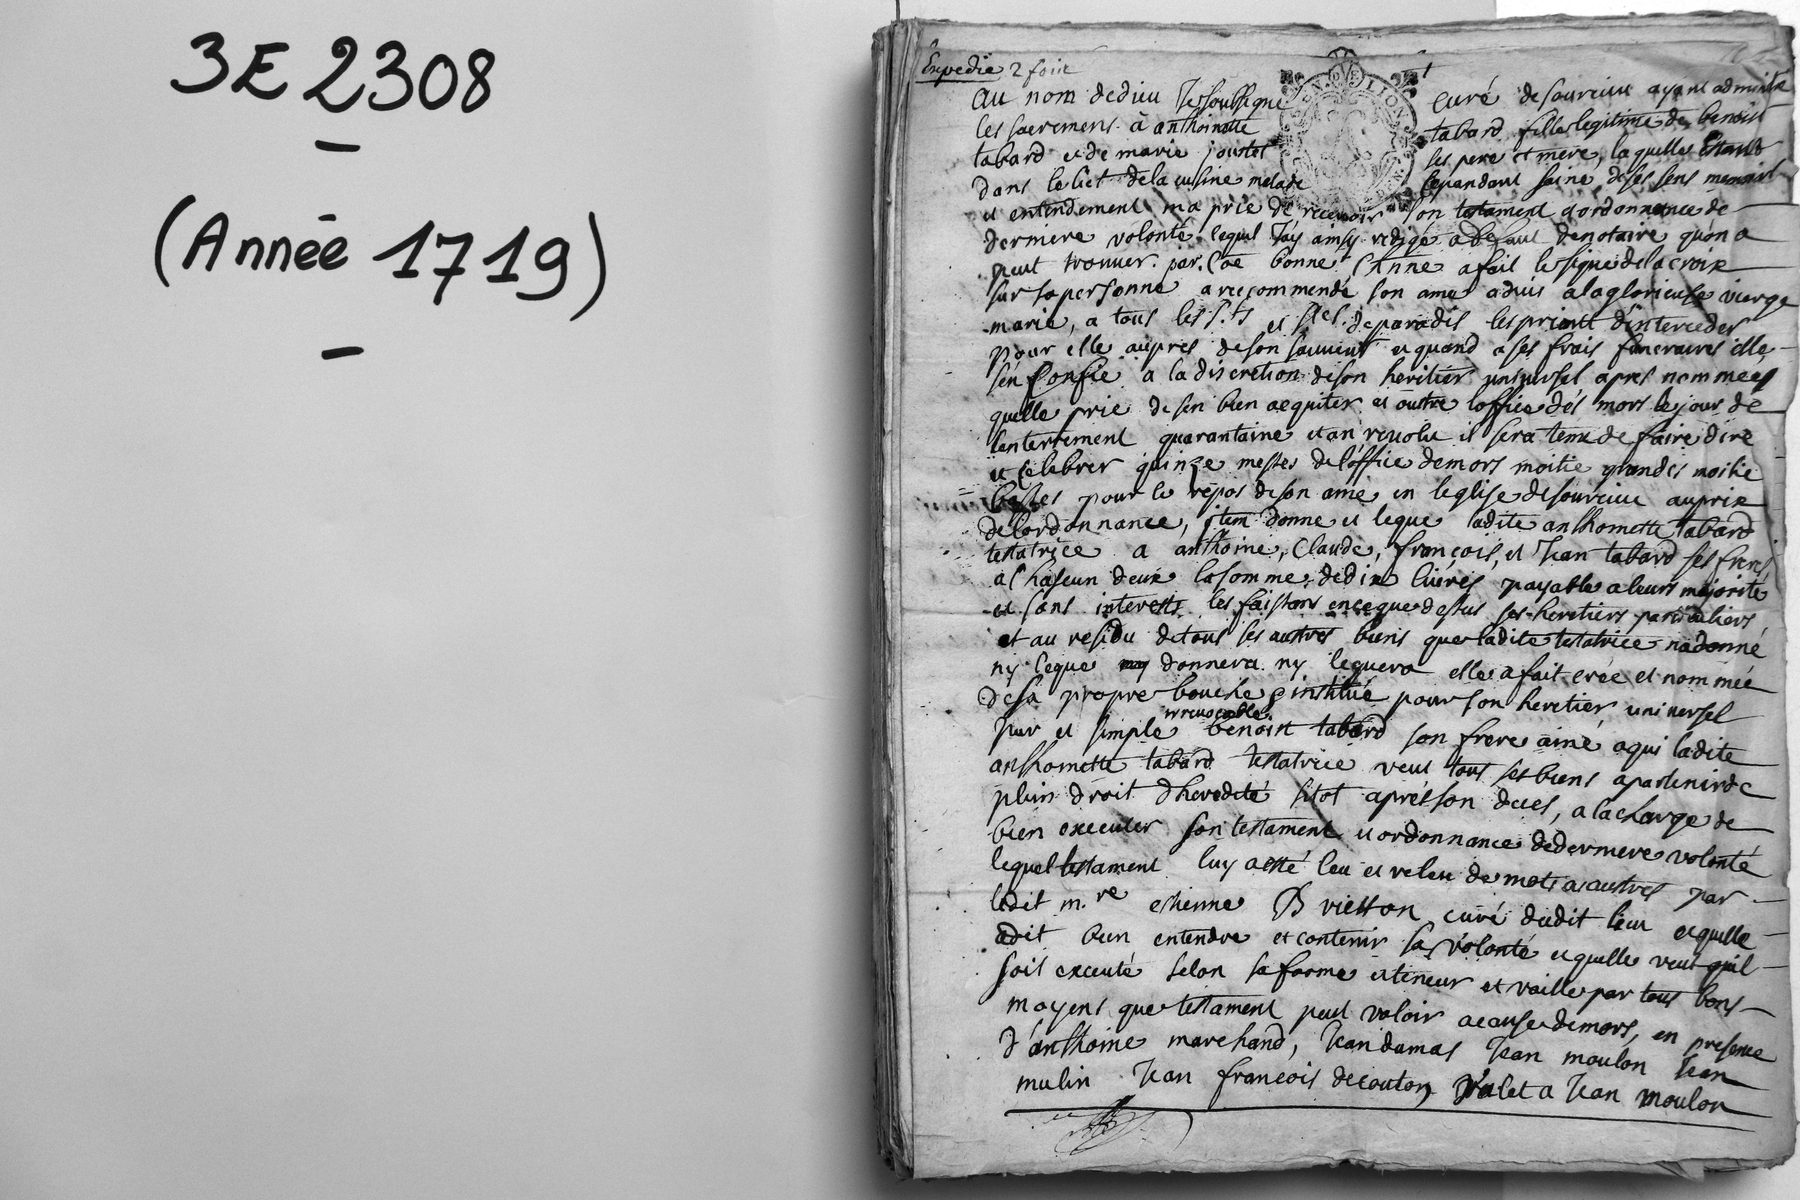 3E 2308
(Année 1719)
Expedié 2 fois
au nom de dieu Je soussigné curé de sourcieu ayant administré
les sacremens à anthoinette tabard fille legitime de benoist
tabard et de marie joustet ses pere et mere, laquelle estant
dans le lict de la cuisine malade cependant saine de ses sens memoire
et entendement m'a prié de recevoir son testament et ordonnance de
derniere volonté, lequel J'ay ainsy redigé a defaut de notaire qu'on a
peut trouver. par. bonne a fait le signe de la croix
sur sa personne a recommendé son ame a dieu a la glorieuse vierge
marie, a tous les S.ts et S.tes de paradis les priant d'interceder
pour elle aupres de son sauveur et quand a ses frais funeraires elle
s'en confie a la discretion de son heritier universel apres nommee
quelle prie de s'en bien aequiter et outre loffice des mors le jour de
lenterrement quarantaine et an revolu il sera tenu de faire dire
et celebrer quinze messes de l'office de mors moitie grandes moitie
basses pour le repos de son ame en leglise de sourcieu au prix
de l'ordonnance, jtem donne et legue ladite anthoinette tabard
testatrice a anthoine, Claude, françois, et Jean tabard ses freres
a chascun deux la somme de dix livres payable a leurs majorité
et sans interests les faisans en ce que dessus ses heretiers particuliers
et au residu de tous ses autres biens que ladite testatrice n'a donné
ny legue donnera ny leguera elle a fait crée et nommée
de sa propre bouche institué pour son heretier universel
irrevocable
pur et simple benoist tabard son frere ainé a qui ladite
anthoinette tabard testatrice veut tous ses biens apartenir de
plein droit d'heredité sitot apres son deces, a la charge de
bien executer son testament et ordonnance de derniere volonté
lequel testament luy a esté leu et releu de mots a autres par
ledit m.re estienne Brietton curé dudit lieu et quelle
a dit bien entendre et contenir sa volonté et quelle veut qu'il
soit executé selon sa forme et teneur et vaille par tous bons
moyens que testament peut valoir a cause de mors, en presence
d'anthoine marchand, Jean damas Jean moulon Jean
mulin Jean françois decouton, valet a Jean moulon